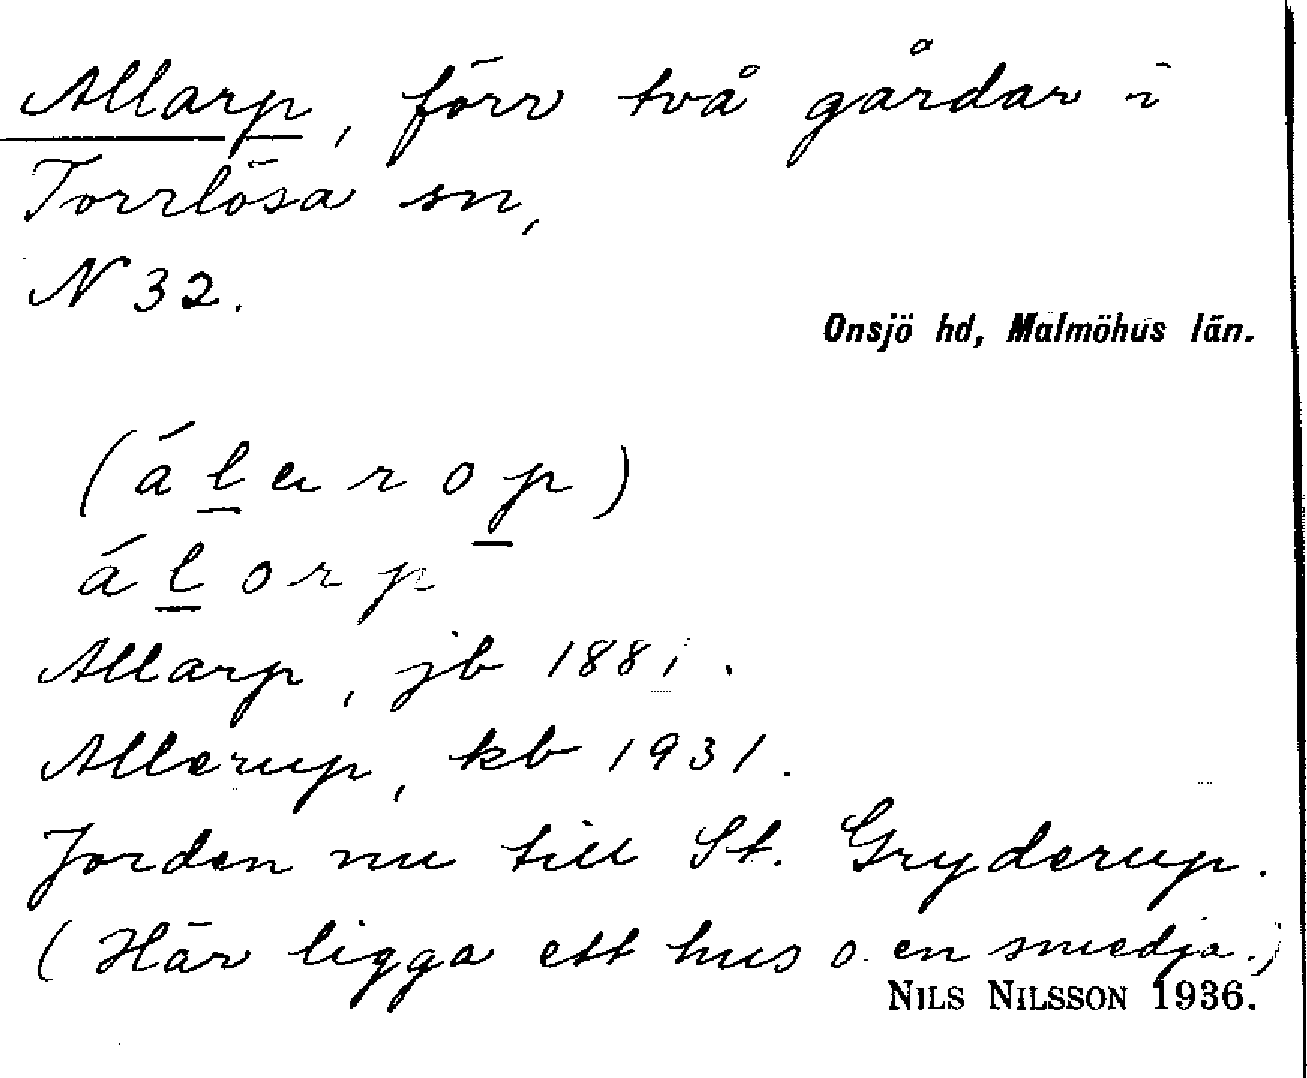 Allarp, förr två gårdar i
Torrlösa sn,
N 32.
Onsjö hd, Malmöhus län.
(álarop)
álorp
Allarp, jb 1881.
Allerup, kb 1931.
Jorden nu till St. Gryderup.
(Här ligga ett hus o. en smedja.)
NILS NILSSON 1936.